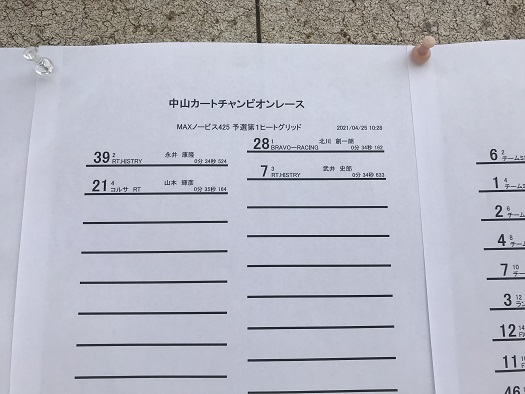 中山カートチャンピオンレース
MAXノービス425 予選第1ヒートグリッド 2021/04/25 10:28
28 1 北川 創一朗
BRAVO－RACING 0分 34秒 192
39 2 永井 康隆
RT.HISTRY 0分 34秒 524
7 3 武井 史郎
RT.HISTRY 0分 34秒 633
21 4 山本 輝彦
コルサ RT 0分 35秒 164
6 2
チーム
1 4
チーム
2 6
チーム
4 8
チーム
7 10
チーム
3 12
12 14
11 16
46